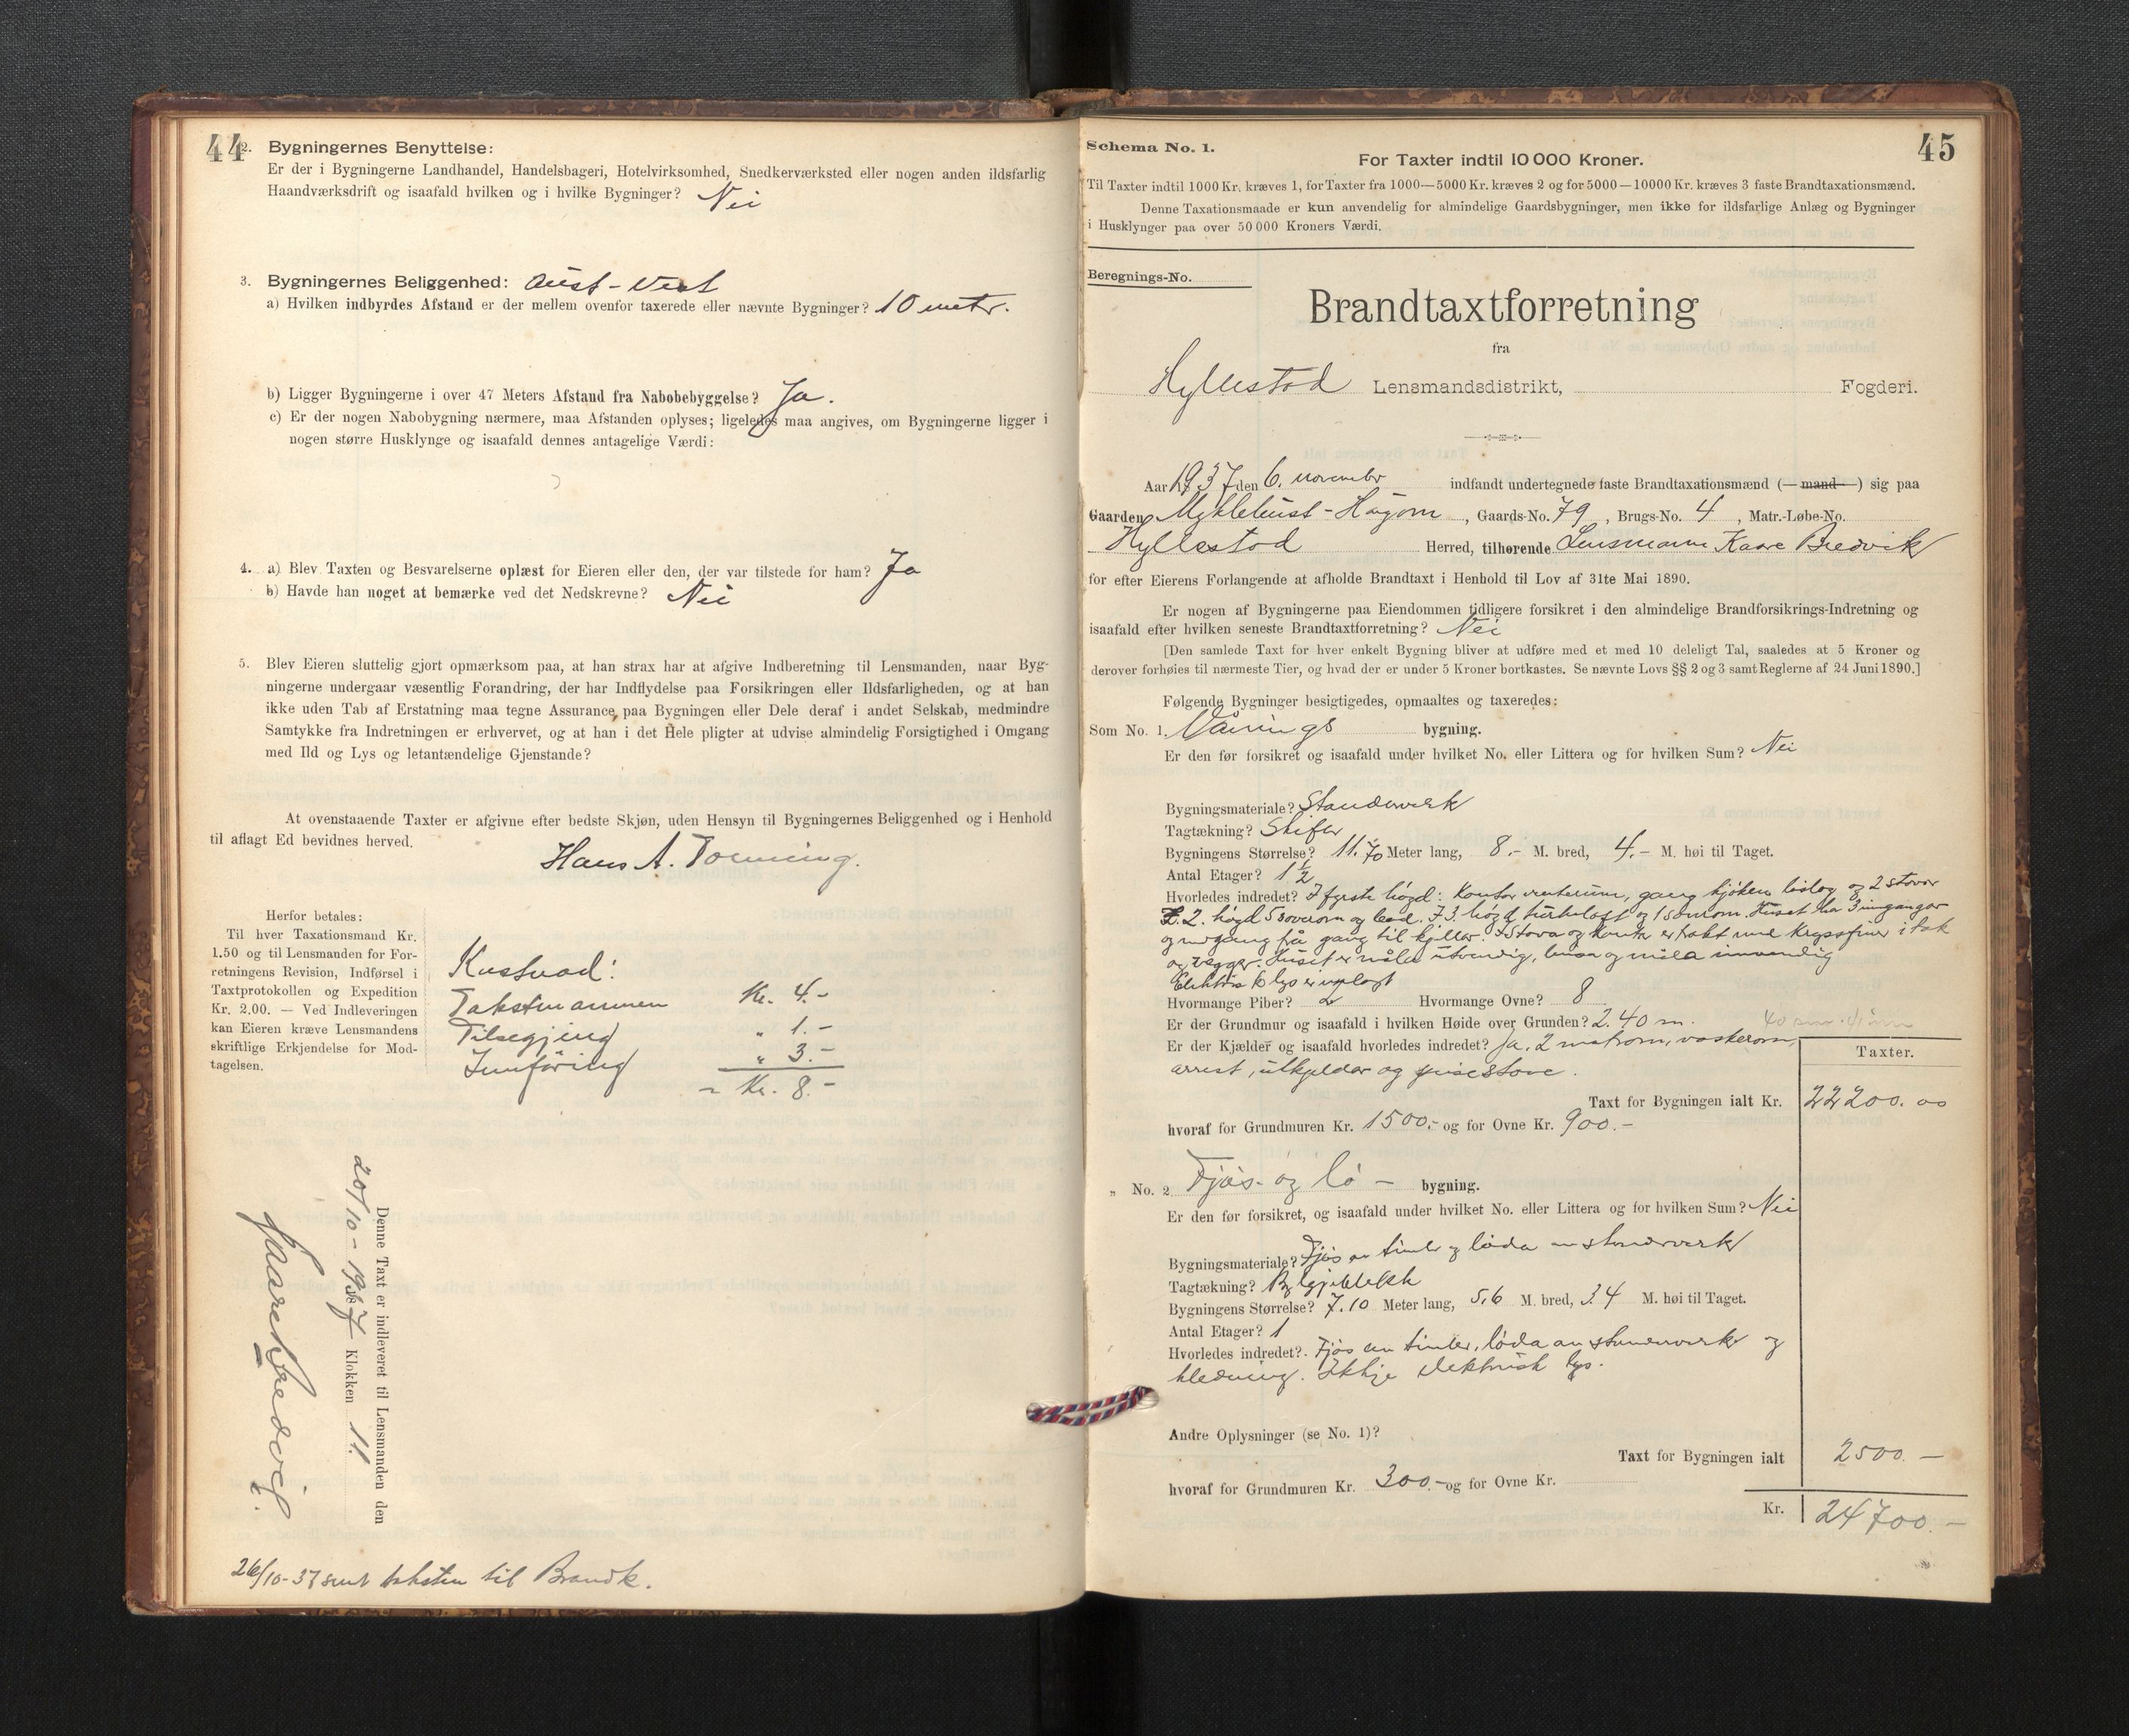 44
2. Bygningernes Benyttelse:
Er der i Bygningerne Landhandel, Handelsbageri, Hotelvirksomhed, Snedkerværksted eller nogen anden ildsfarlig
Haandværksdrift og isaafald hvilken og i hvilke Bygninger? Nei
3. Bygningernes Beliggenhed: Aust-Vest
a) Hvilken indbyrdes Afstand er der mellem ovenfor taxerede eller nævnte Bygninger? 10 metr.
b) Ligger Bygningerne i over 47 Meters Afstand fra Nabobebyggelse? Ja.
c) Er der nogen Nabobygning nærmere, maa Afstanden oplyses; ligeledes maa angives, om Bygningerne ligger i
nogen større Husklynge og isaafald dennes antagelige Værdi:
4. a) Blev Taxten og Besvarelserne oplæst for Eieren eller den, der var tilstede for ham? Ja
b) Havde han noget at bemærke ved det Nedskrevne? Nei
5. Blev Eieren sluttelig gjort opmærksom paa, at han strax har at afgive Indberetning til Lensmanden, naar Byg-
ningerne undergaar væsentlig Forandring, der har Indflydelse paa Forsikringen eller Ildsfarligheden, og at han
ikke uden Tab af Erstatning maa tegne Assurance paa Bygningen eller Dele deraf i andet Selskab, medmindre
Samtykke fra Indretningen er erhvervet, og at han i det Hele pligter at udvise almindelig Forsigtighed i Omgang
med Ild og Lys og letantændelige Gjenstande?
At ovenstaaende Taxter er afgivne efter bedste Skjøn, uden Hensyn til Bygningernes Beliggenhed og i Henhold
til aflagt Ed bevidnes herved.
Hans A.
Herfor betales:
Til hver Taxationsmand Kr.
1.50 og til Lensmanden for For-
retningens Revision, Indførsel i
Taxtprotokollen og Expedition
Kr. 2.00. — Ved Indleveringen
kan Eieren kræve Lensmandens
skriftlige Erkjendelse for Mod-
tagelsen.
Kostnad:
Takstmannen Kr. 4.-
" 1.-
Innföring " 3.-
= Kr. 8.-
Denne Taxt er indleveret til Lensmanden den
20/10-1937 Klokken 11.
Kaare Bredvik.
26/10-37 sent taksten til Brandk.
45
Schema No. 1.
For Taxter indtil 10 000 Kroner.
Til Taxter indtil 1000 Kr. kræves 1, for Taxter fra 1000—5000 Kr. kræves 2 og for 5000—10000 Kr. kræves 3 faste Brandtaxationsmænd.
Denne Taxationsmaade er kun anvendelig for almindelige Gaardsbygninger, men ikke for ildsfarlige Anlæg og Bygninger
i Husklynger paa over 50 000 Kroners Værdi.
Beregnings-No.
Brandtaxtforretning
fra
Hyllestad Lensmandsdistrikt, Fogderi.
Aar 1937 den 6. november indfandt undertegnede faste Brandtaxationsmænd (— mand —) sig paa
Gaarden Myklebust-Haugom, Gaards-No. 79, Brugs-No. 4, Matr.-Løbe-No.
Hyllestad Herred, tilhørende Lensmann Kaare Bredvik
for efter Eierens Forlangende at afholde Brandtaxt i Henhold til Lov af 31te Mai 1890.
Er nogen af Bygningerne paa Eiendommen tidligere forsikret i den almindelige Brandforsikrings-Indretning og
isaafald efter hvilken seneste Brandtaxtforretning? Nei
[Den samlede Taxt for hver enkelt Bygning bliver at udføre med et med 10 deleligt Tal, saaledes at 5 Kroner og
derover forhøies til nærmeste Tier, og hvad der er under 5 Kroner bortkastes. Se nævnte Lovs §§ 2 og 3 samt Reglerne af 24 Juni 1890.]
Følgende Bygninger besigtigedes, opmaaltes og taxeredes:
Som No. 1. Vånings bygning.
Er den før forsikret og isaafald under hvilket No. eller Littera og for hvilken Sum? Nei
Bygningsmateriale? Standerverk
Tagtækning? Skifer
Bygningens Størrelse? 11.70 Meter lang, 8.- M. bred, 4.- M. høi til Taget.
Antal Etager? 1 ½
Hvorledes indredet? I fyrste högd: Kontor venterum, gang kjöken bislag og 2 stover
I. 2. högd 5 soverom og bad. I 3. högd törkeloft og 1 soverom. Huset har 3 inngangar
og nedgang frå gang til kjellar. Stova og kontor er trekt med kryssfiner i tak
og vegger. Huset er måla utvendig, beisa og måla innvendig
Elektrisk lys er innlagt
Hvormange Piber? 2 Hvormange Ovne? 8
Er der Grundmur og isaafald i hvilken Høide over Grunden? 2.40 m.
Er der Kjælder og isaafald hvorledes indredet? Ja, 2 matrom, vaskerom,
arrest, utkjeldar og peisestove.
Taxter.
Taxt for Bygningen ialt Kr. 22200.00
hvoraf for Grundmuren Kr. 1500.- og for Ovne Kr. 900.-
„ No. 2 Fjös- og lö - bygning.
Er den før forsikret, og isaafald under hvilket No. eller Littera og for hvilken Sum? Nei
Bygningsmateriale? Fjös av timber og löda av standerverk
Tagtækning? Bylgjeblekk
Bygningens Størrelse? 7.10 Meter lang, 5,6 M. bred, 3.4 M. høi til Taget.
Antal Etager? 1
Hvorledes indredet? Fjös av timber, löda av standerverk og
kledning. Ikkje elektrisk lys.
Andre Oplysninger (se No. 1)?
Taxt for Bygningen ialt 2500.-
hvoraf for Grundmuren Kr. 300.- og for Ovne Kr.
Kr. 24700.-